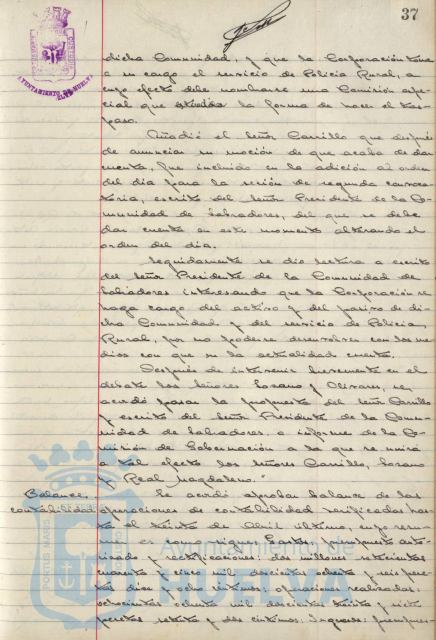 37
dicha Comunidad, y que la Corporación tome
a su cargo el servicio de Policia Rural, a
cuyo efecto debe nombrarse una Comisión espe-
cial que la forma de hacer el tras-
paso.
Añadió el Señor Carrillo que después
de anunciar su moción de que acaba de dar
cuenta, fue incluido en la adición al orden
del dia para la sesión de segunda convoca-
toria, escrito del Señor Presidente de la Co-
munidad de Labradores, del que se debe
dar cuenta en este momento alterando el
orden del dia.
Seguidamente se dió lectura a escrito
del Señor Presidente de la Comunidad de
Labradores interesando que la Corporación se
haga cargo del activo y del pasivo de di-
cha Comunidad y del servicio de Policia
Rural, por no poderse desenvolver con los me-
dios con que en la actualidad cuenta.
Después de intervenir brevemente en el
debate los Señores Lozano y Olivares, se
acordó pasar la propuesta del Señor Carrillo
y escrito del Señor Presidente de la Comu-
nidad de Labradores a informe de la Co-
misión de Gobernación a la que se unirá
a tal efecto los Señores Carrillo, Lozano
y Real Magdaleno."
Balance, contabilidad
Se acordó aprobar balance de las
operaciones de contabilidad verificadas has-
ta el treinta de Abril último, cuyo resu-
men es como sigue: Gastos; presupuesto auto-
rizado y rectificaciones: dos millones trescientas
cuarenta y cinco mil doscientas ochenta y seis pese-
tas diez y ocho céntimos; operaciones realizadas:
ochocientas ochenta mil doscientas treinta y siete
pesetas setenta y dos céntimos; Ingresos: presupues-
AYUNTAMIENTO DE HUELVA
Ayuntamiento de
HUELVA
PORTUS MARIS